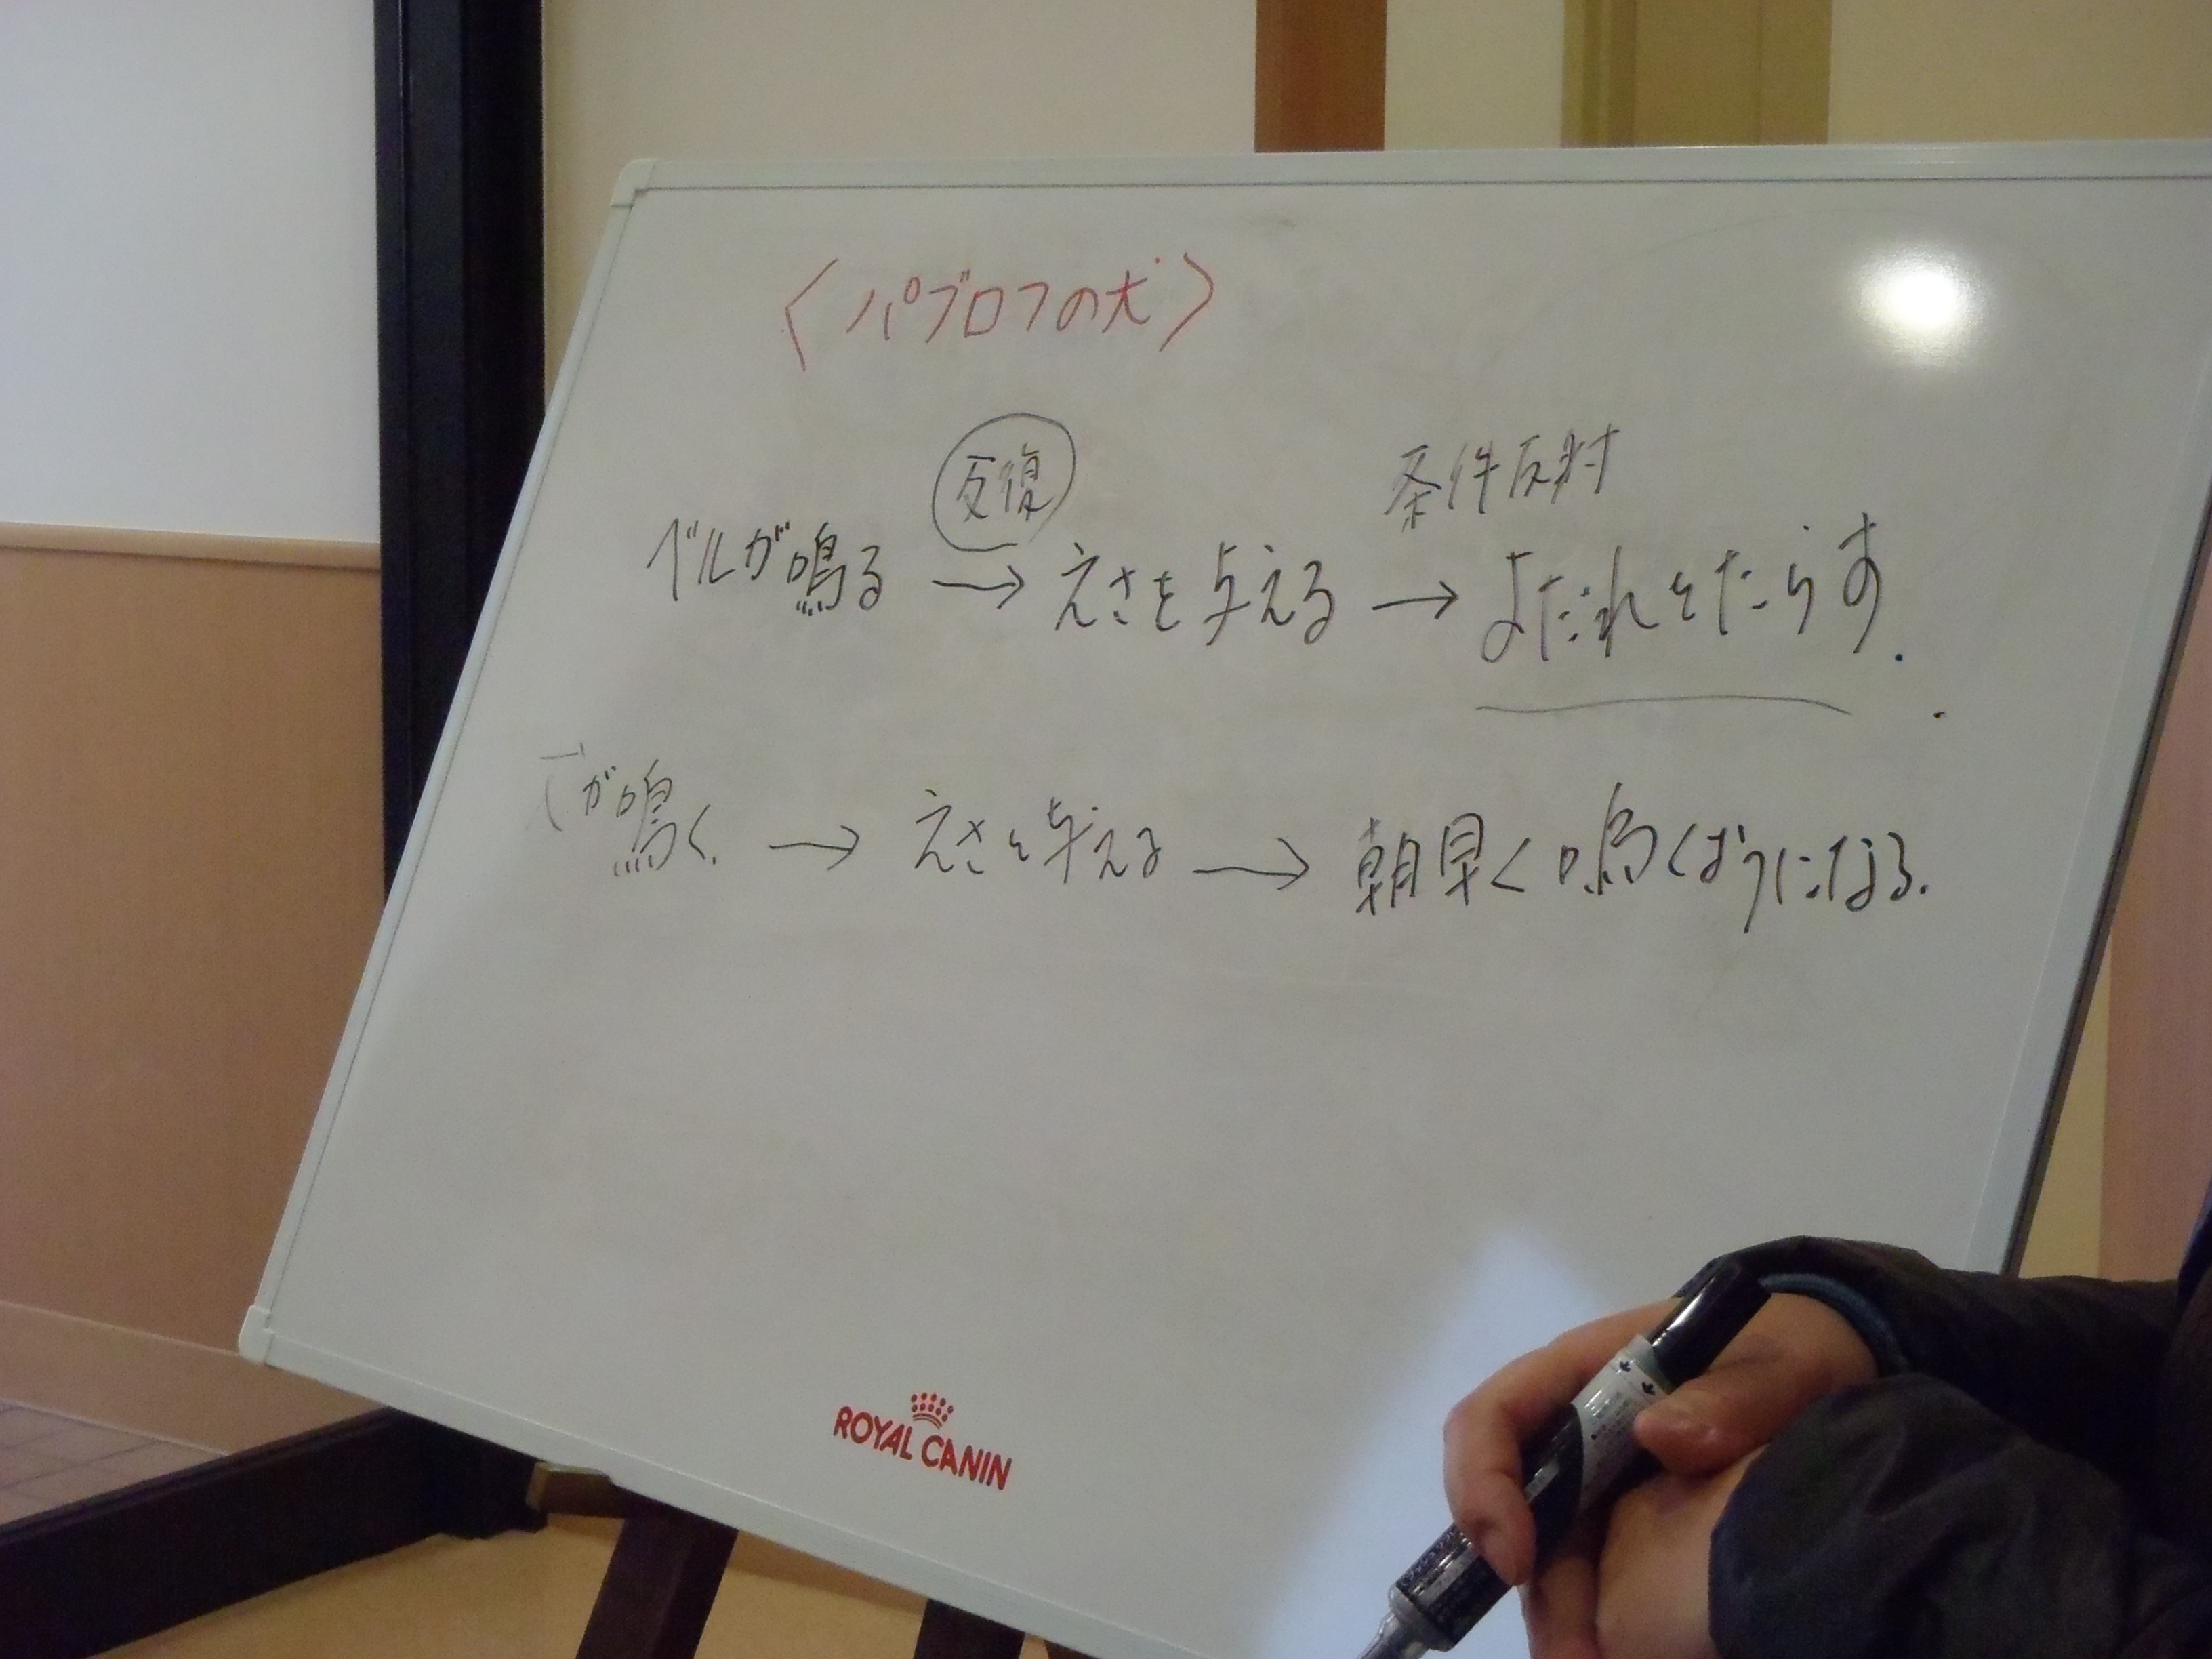 〈パブロフの犬〉
反復
条件反射
ベルが鳴る → えさを与える → よだれをたらす.
が鳴く → えさを与える → 朝早く鳴くようになる.
ROYAL CANIN